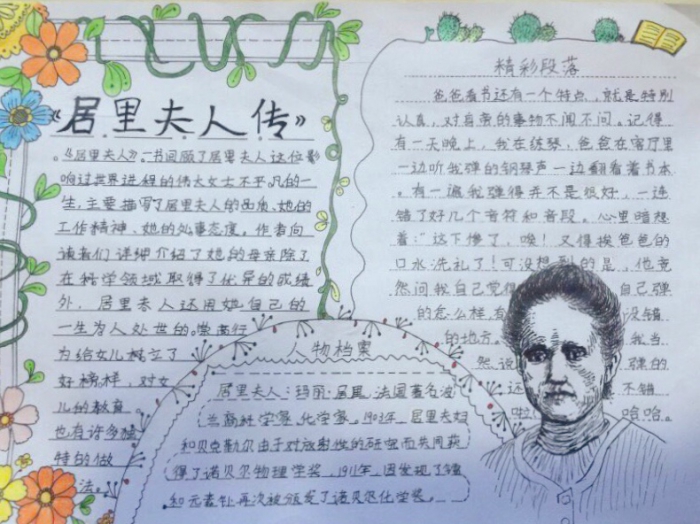 《居里夫人传》
《居里夫人》一书回顾了居里夫人这位影
响过世界进程的伟大女士不平凡的一
生,主要描写了居里夫人的品质、她的
工作精神、她的处事态度。作者向
读者们详细介绍了她的母亲除了
在科学领域取得了优异的成绩
外,居里夫人还用她自己的
一生为人处世的高尚行
为给女儿树立了
好榜样,对女
儿的教育
也有许多独
特的做
法。
精彩段落
爸爸看书还有一个特点,就是特别
认真,对自旁的事物不闻不问。记得
有一天晚上,我在练琴,爸爸在客厅里
一边听我弹的钢琴声一边翻看着书本
。有一遍我弹得并不是很好,一连
错了好几个音符和音段。心里暗想
着:“这下惨了,唉!又得挨爸爸的
口水洗礼了!可没想到的是,他竟
然问我自己觉得 自己弹
的怎么样有 没错
的地方。 我当
然说 弹的
还 不错
啦 哈哈。
人物档案
居里夫人:玛丽·居里,法国著名波
兰裔科学家、化学家。1903年,居里夫妇
和贝克勒尔由于对放射性的研究而共同获
得了诺贝尔物理学奖,1911年,因发现了镭
和元素钋再次被颁发了诺贝尔化学奖。